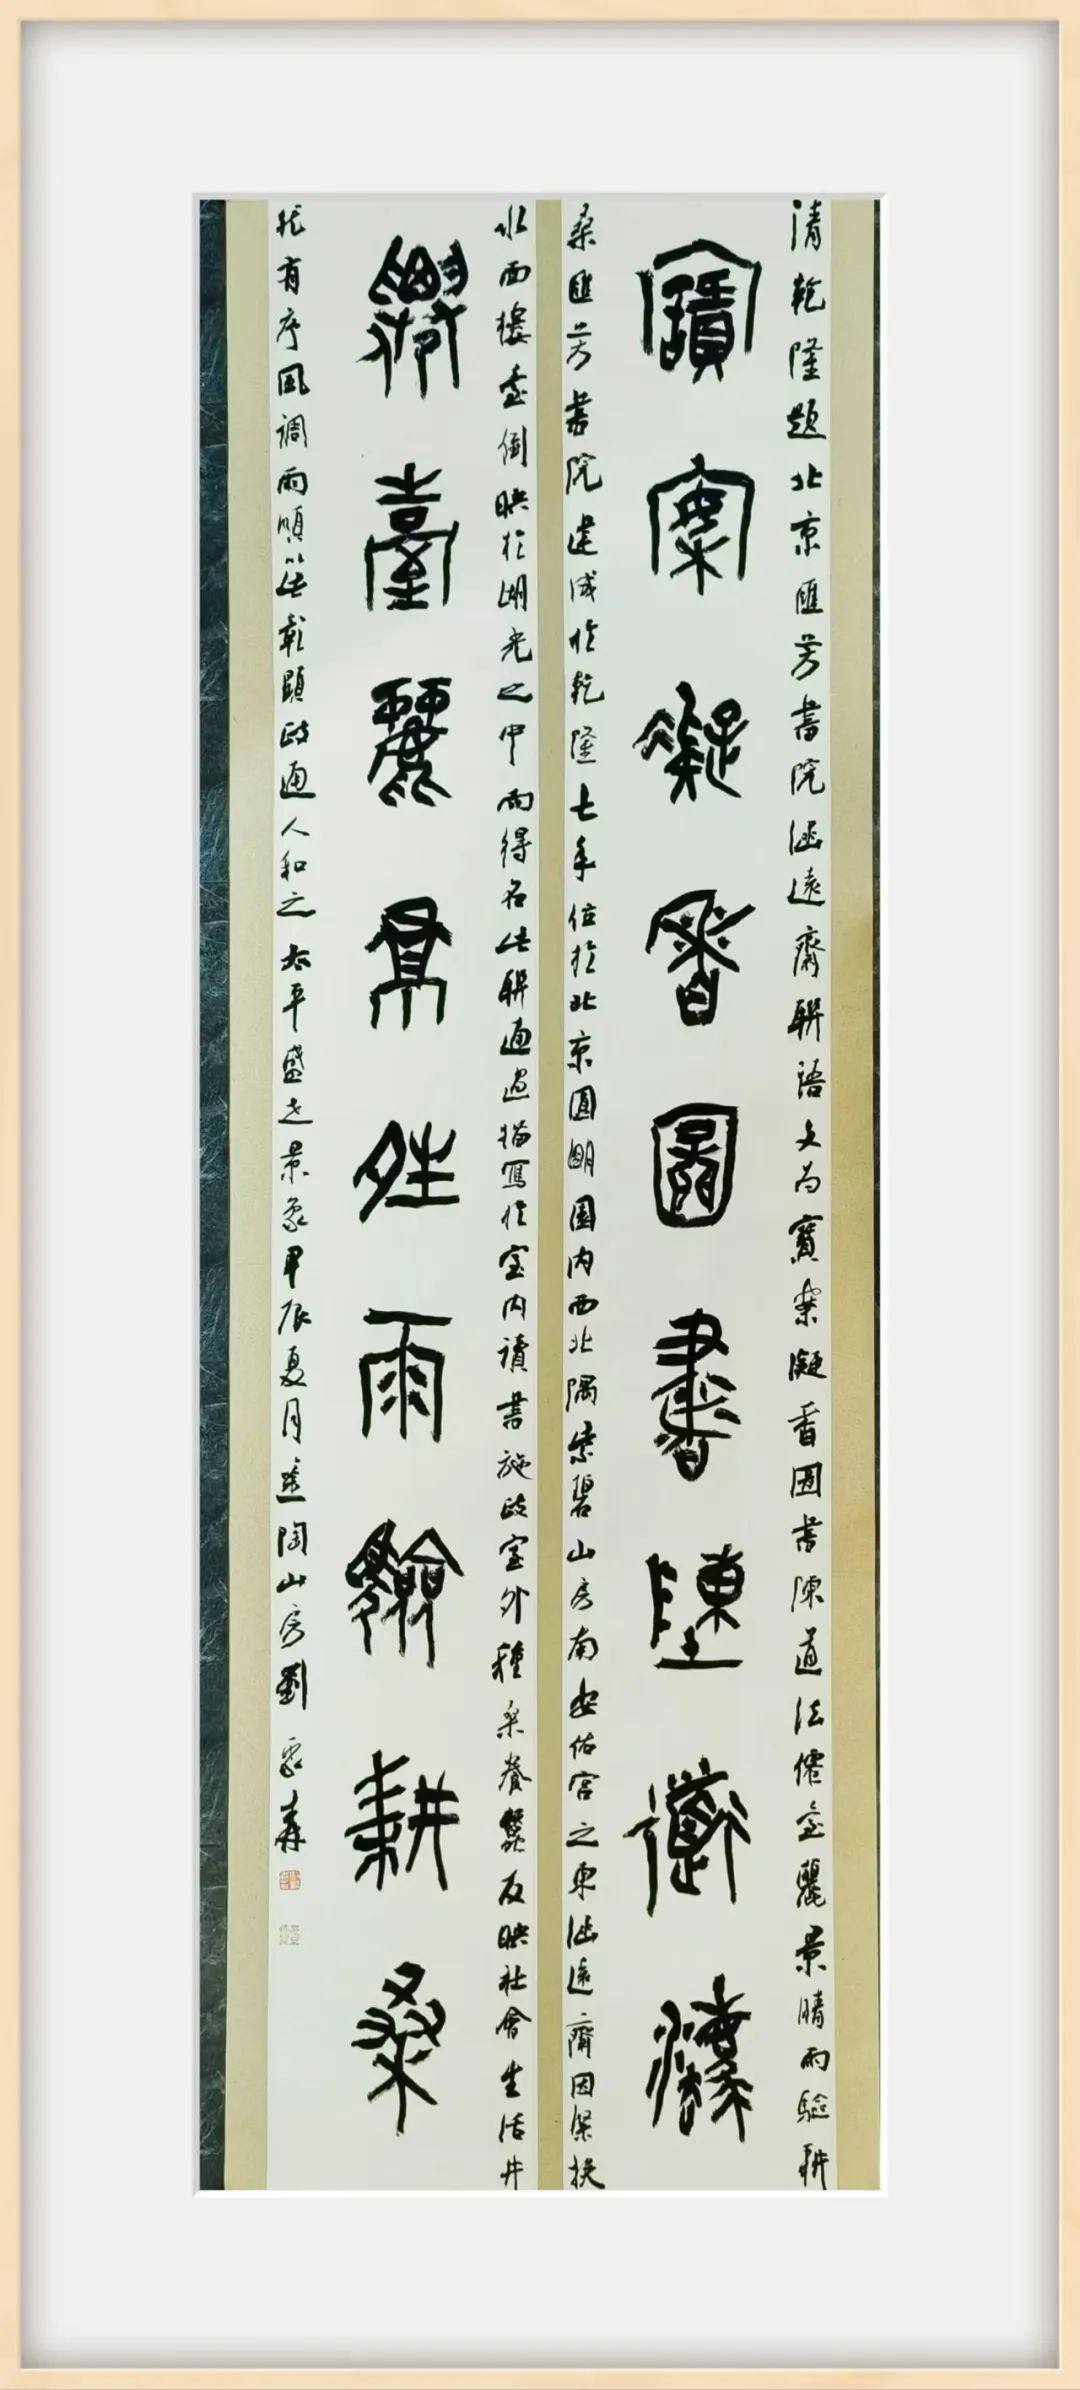 清乾隆題北京匯芳書院涵遠齋聯語文為寶案凝香圖書陳道法僊臺麗景晴雨驗耕
寶案凝香圖書陳道法
桑匯芳書院建成於乾隆七年位於北京圓明園内西北隅紫碧山房南安佑宮之東涵遠齋因
水面樓臺倒映於湖光之中而得名此聯通過描寫於室内讀書施政室外種桑養蠶反映社會生活井
僊臺麗景晴雨驗耕桑
然有序風調雨順以此彰顯政通人和之太平盛世景象甲辰夏月陶山房劉